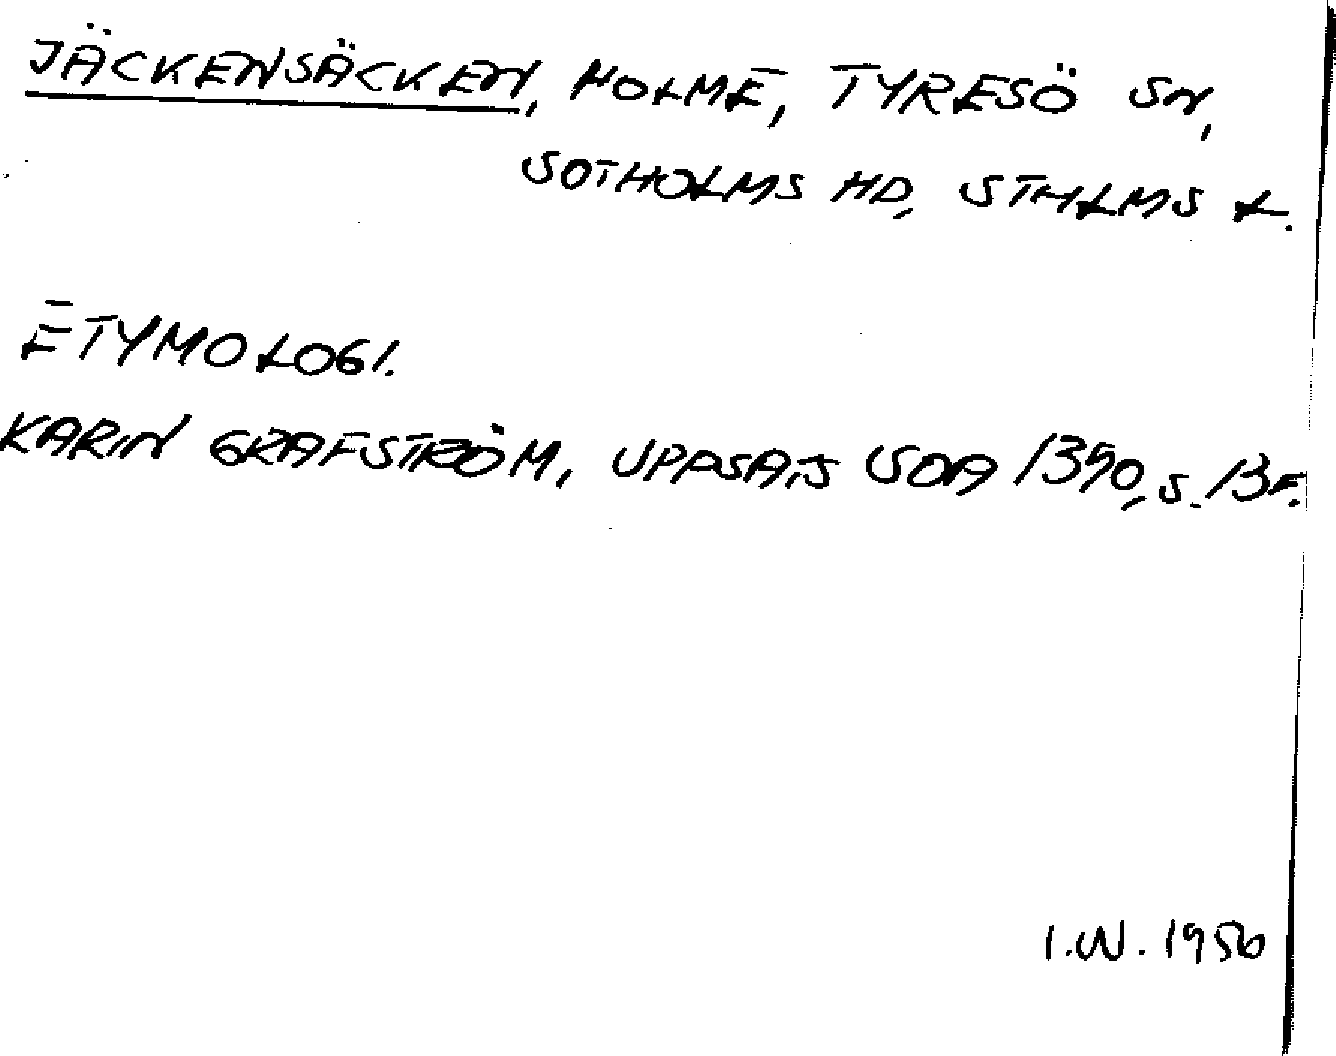 JÄCKENSÄCKEN, HOLME, TYRESÖ SN,
SOTHOLMS HD, STHLMS L.
ETYMOLOGI.
KARIN GRAFSTRÖM, UPPSATS SOA 1390, S. 13F.
I.W. 1956